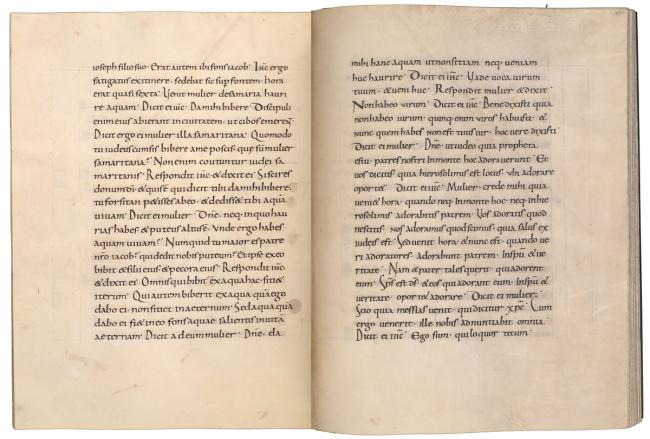 ioseph filio suo · Erat autem ibi fons iacob · Iħc ergo
fatigatus ex itinere · sedebat sic sup fontem · hora
erat quasi sexta · Uenit mulier desamaria hauri
re aquam · Dicit ei iħc · Da mihi bibere · Discipuli
enim eius abierant inciuitatem · ut cibos emerent
Dicit ergo ei mulier illa samaritana · Quomodo
tu iudeus cum sis bibere ame poscis · quę sū mulier
samaritana · Non enim coutuntur iudei sa
maritanis · Respondit iħc & dixit ei · Si scires
donum dī · & quis ē qui dicit tibi da mihi bibere ·
tu forsitan petisses abeo · & dedisset tibi aquā
uiuam · Dicit ei mulier · Dn̄e · neq; in quo hau
rias habes · & puteus altus ē · Unde ergo habes
aquam uiuam · Numquid tu maior es patre
nr̄o iacob · qui dedit nobis puteum · Et ipse exeo
bibit & filii eius & pecora eius · Respondit iħc ·
& dixit ei · Omnis qui bibit ex aqua hac · sitiet
iterum · Qui autem biberit ex aqua quā ego
dabo ei · non sitiet in aeternum · Sed aqua quā
dabo ei fiet in eo fons aquae salientis in uitā
aeternam · Dicit ad eum mulier · Dn̄e · da
mihi hanc aquam ut non sitiam · neq; ueniam
huc haurire · Dicit ei iħc · Uade uoca uirum
tuum · & ueni huc · Respondit mulier & dixit ·
Non habeo uirum · Dicit ei iħc · Bene dixisti quia
non habeo uirum · quinq; enim uiros habuisti · &
nunc quem habes non est tuus uir · hoc uere dixisti ·
Dicit ei mulier · Dn̄e · ut uideo quia propheta
es tu · patres nostri in monte hoc adorauerunt · Et
uos dicitis · quia hierosolimis est locus · ubi adorare
oportet · Dicit ei iħc · Mulier · crede mihi quia
ueniet hora · quando neq; in monte hoc · neq; in hie
rosolimis adorabitis patrem · Uos adoratis quod
nescitis · Nos adoramus quod scimus · quia salus ex
iudeis est · Sed uenit hora · & nunc est · quando ue
ri adoratores adorabunt patrem · In sp̄u & ue
ritate · Nam & pater tales querit · qui adorent
eum · Sp̄s est ds̄ · & eos qui adorant eum · In sp̄u &
ueritate · oportet adorare · Dicit ei mulier ·
Scio quia messias uenit · qui dicitur xp̄c · Cum
ergo uenerit · ille nobis adnuntiabit omnia ·
Dicit ei iħc · Ego sum · qui loquor tecum ·